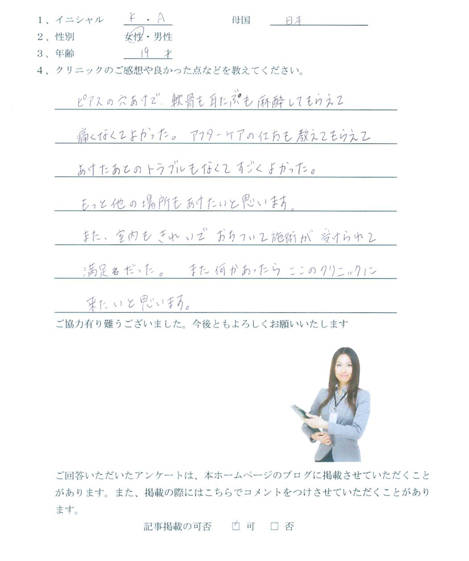 1、イニシャル K．A 母国 日本
2、性別 女性・男性
3、年齢 19 才
4、クリニックのご感想や良かった点などを教えてください。
ピアスの穴あけで、軟骨も耳たぶも麻酔してもらえて
痛くなくてよかった。アフターケアの仕方も教えてもらえて
あけたあとのトラブルもなくてすごくよかった。
もっと他の場所もあけたいと思います。
また、室内もきれいでおちついて施術が受けられて
満足だった。 また何かあったらここのクリニックに
来たいと思います。
ご協力有り難うございました。今後ともよろしくお願いいたします
ご回答いただいたアンケートは、本ホームページのブログに掲載させていただくこと
があります。また、掲載の際にはこちらでコメントをつけさせていただくことがあり
ます。
記事掲載の可否 ☑ 可 □ 否